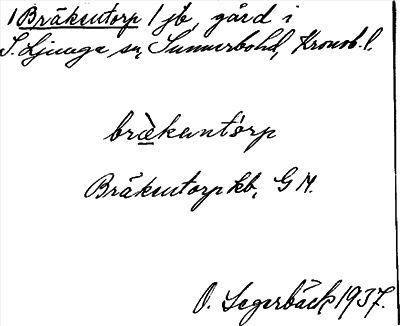 1 Bräkentorp 1 jb, gård i
S. Ljunga sn, Sunnerbohd, Kronob. l.
bræ̀kantórp
Bräkentorp kb, GM.
O. Segerbäck 1937.